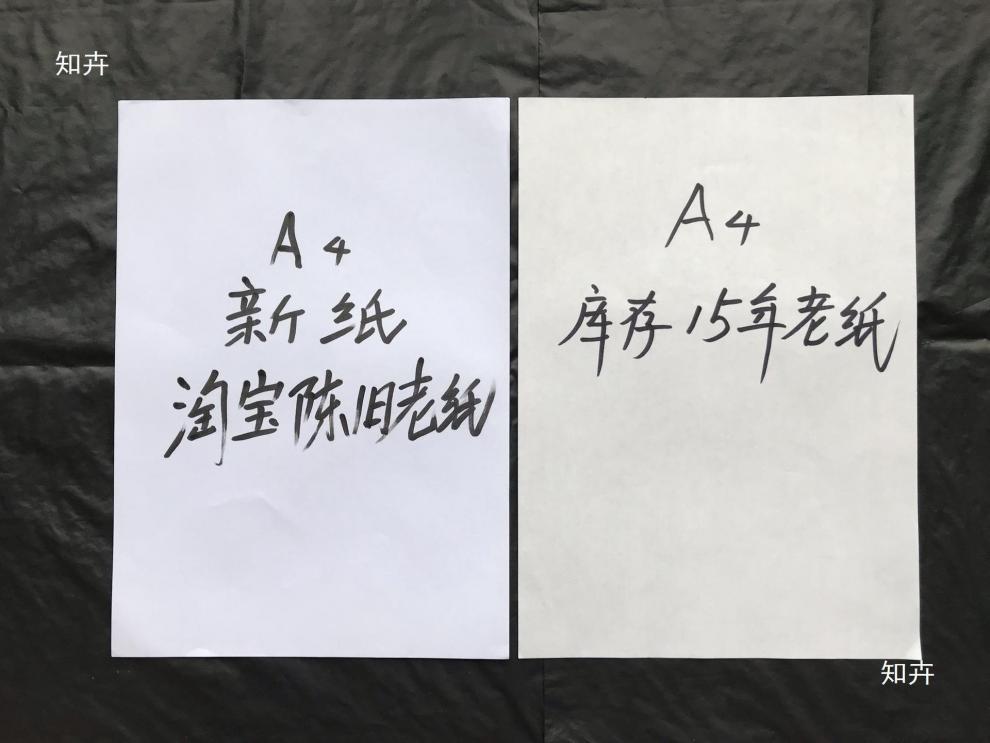 知卉
A4
新纸
淘宝陈旧老纸
A4
库存15年老纸
知卉